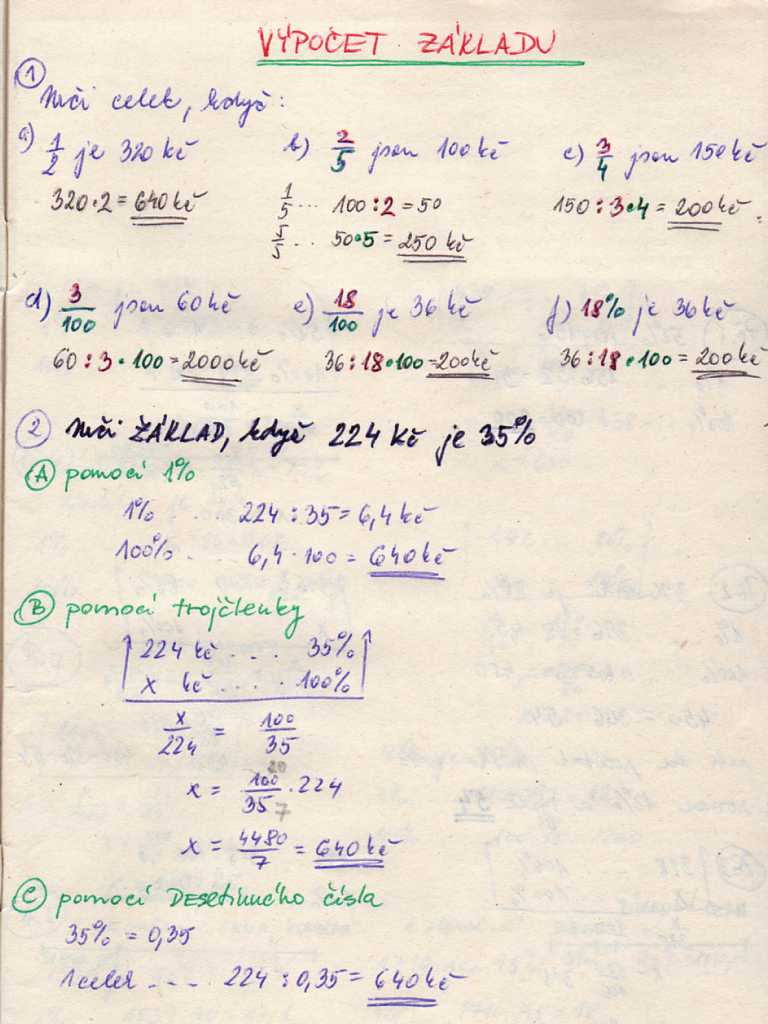 VÝPOČET ZÁKLADU
①
Urči celek, když:
a) 1/2 je 320 kč b) 2/5 jsou 100 kč c) 3/4 jsou 150 kč
320·2 = 640 kč 1/5 ... 100 : 2 = 50 150 : 3·4 = 200 kč
5/5 ... 50·5 = 250 kč
d) 3/100 jsou 60 kč e) 18/100 je 36 kč f) 18% je 36 kč
60 : 3 · 100 = 2000 kč 36 : 18·100 = 200 kč 36 : 18 · 100 = 200 kč
② Urči ZÁKLAD, když 224 Kč je 35%
Ⓐ pomocí 1%
1% ... 224 : 35 = 6,4 kč
100% . 6,4 · 100 = 640 kč
Ⓑ pomocí trojčlenky
224 kč .... 35%
x kč .... 100%
x/224 = 100/35
x = 100/35 · 224
20
7
x = 4480/7 = 640 kč
Ⓒ pomocí Desetinného čísla
35% = 0,35
1 celek .... 224 : 0,35 = 640 kč